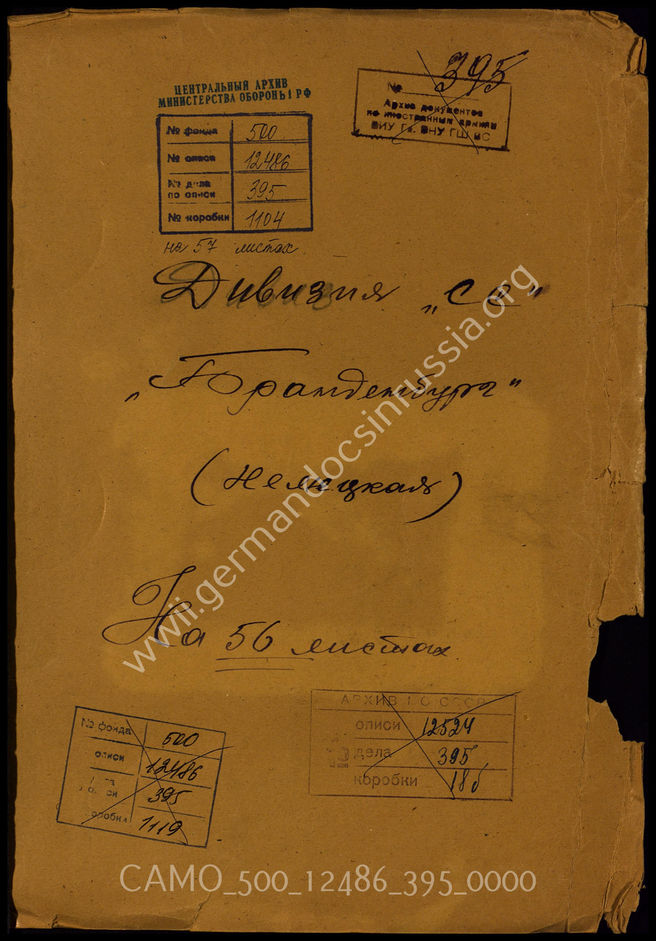 395
№
Архив документов
по иностранным армиям
ВИУ Гл. ВНУ ГШ ВС
ЦЕНТРАЛЬНЫЙ АРХИВ
МИНИСТЕРСТВА ОБОРОНЫ РФ
№ фонда 500
№ описи 12486
№ дела по описи 395
№ коробки 1104
на 57 листах
Дивизия „СС"
„Бранденбург"
(немецкая)
На 56 листах
№ фонда 500
описи 12486
395
1119
АРХИВ СССР
описи 12524
дела 395
коробки 186
www.germandocsinrussia.org
CAMO_500_12486_395_0000